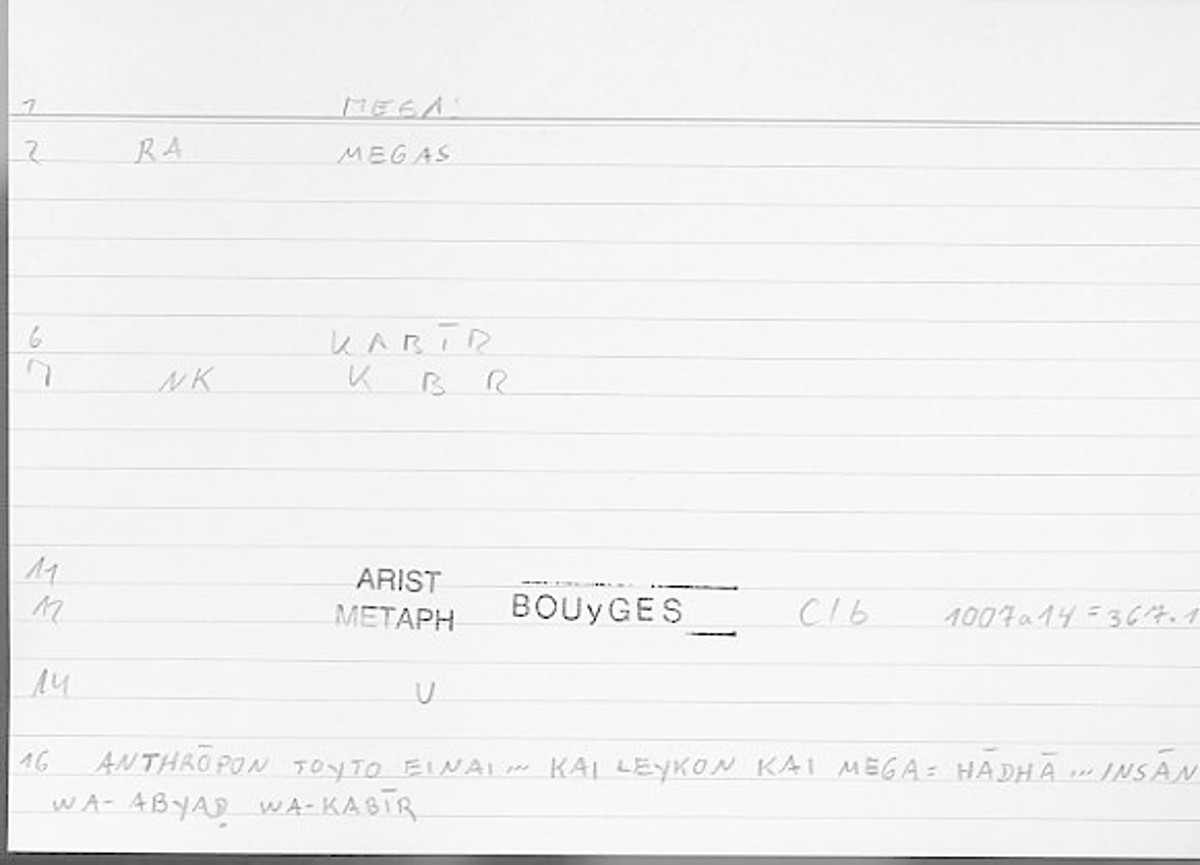 1 MEGA:
2 RA MEGAS
6 KABĪR
7 NK K B R
11 ARIST
12 METAPH BOUyGES C16 1007a14=367.1
14 U
16 ANTHRŌPON TOYTO EINAI... KAI LEYKON KAI MEGA= HĀDHĀ... INSĀN
WA-ABYAḌ WA-KABĪR